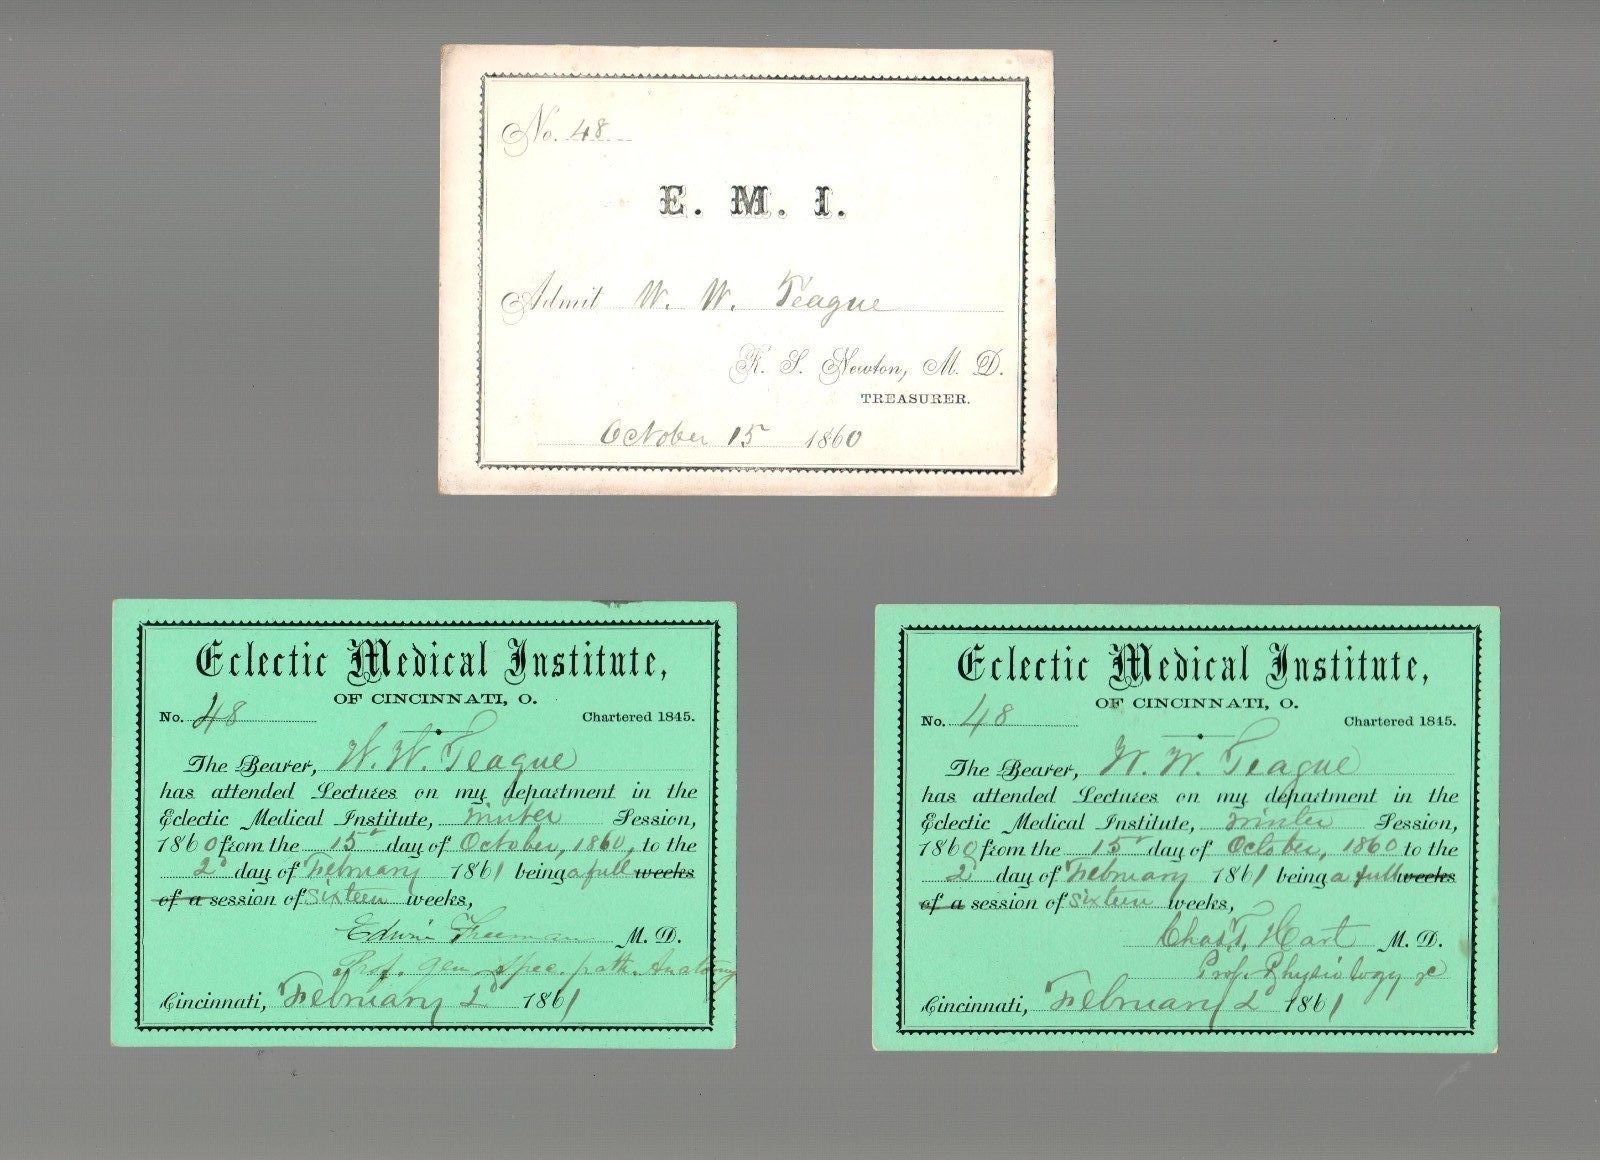 No. 48
E. M. I.
Admit W. W. Teague
R. S. Newton, M. D.
TREASURER.
October 15 1860
Eclectic Medical Institute,
OF CINCINNATI, O.
No. 48 Chartered 1845.
The Bearer, W. W. Teague
has attended Lectures on my department in the
Eclectic Medical Institute, winter Session,
1860 from the 15th day of October, 1860, to the
2d day of February 1861 being a full weeks
of a session of sixteen weeks,
Edwin Freeman M. D.
Prof. gen. spec. path. Anatomy
Cincinnati, February 2d 1861
Eclectic Medical Institute,
OF CINCINNATI, O.
No. 48 Chartered 1845.
The Bearer, W. W. Teague
has attended Lectures on my department in the
Eclectic Medical Institute, winter Session,
1860 from the 15th day of October, 1860 to the
2d day of February 1861 being a full weeks
of a session of sixteen weeks,
Chas. T. Hart M. D.
Prof. Physiology &c
Cincinnati, February 2d 1861